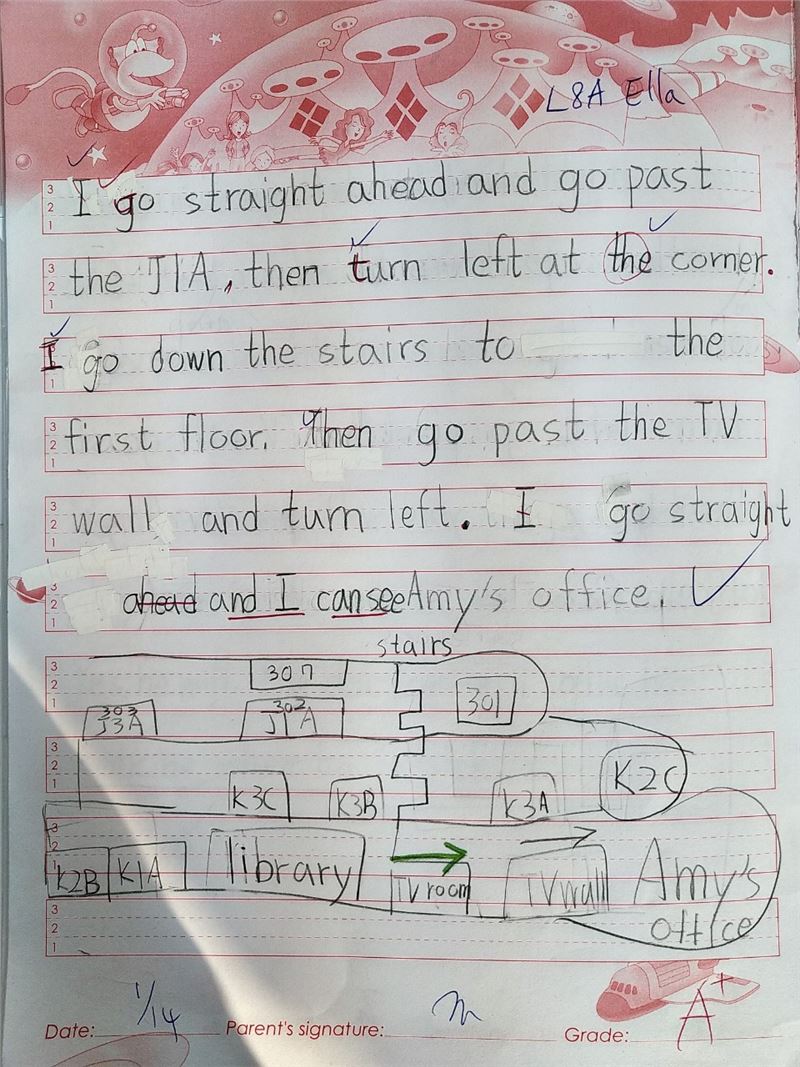 L8A Ella
I go straight ahead and go past
the J1A, then turn left at the corner.
I go down the stairs to the
first floor. Then go past the TV
wall and turn left. I go straight
ahead and I can see Amy's office.
stairs
307
303
J3A
302
J1A
301
K3C
K3B
K3A
K2C
K2B
K1A
library
TV room
TV wall
Amy's
office
Date: 1/14 Parent's signature: Grade: A+